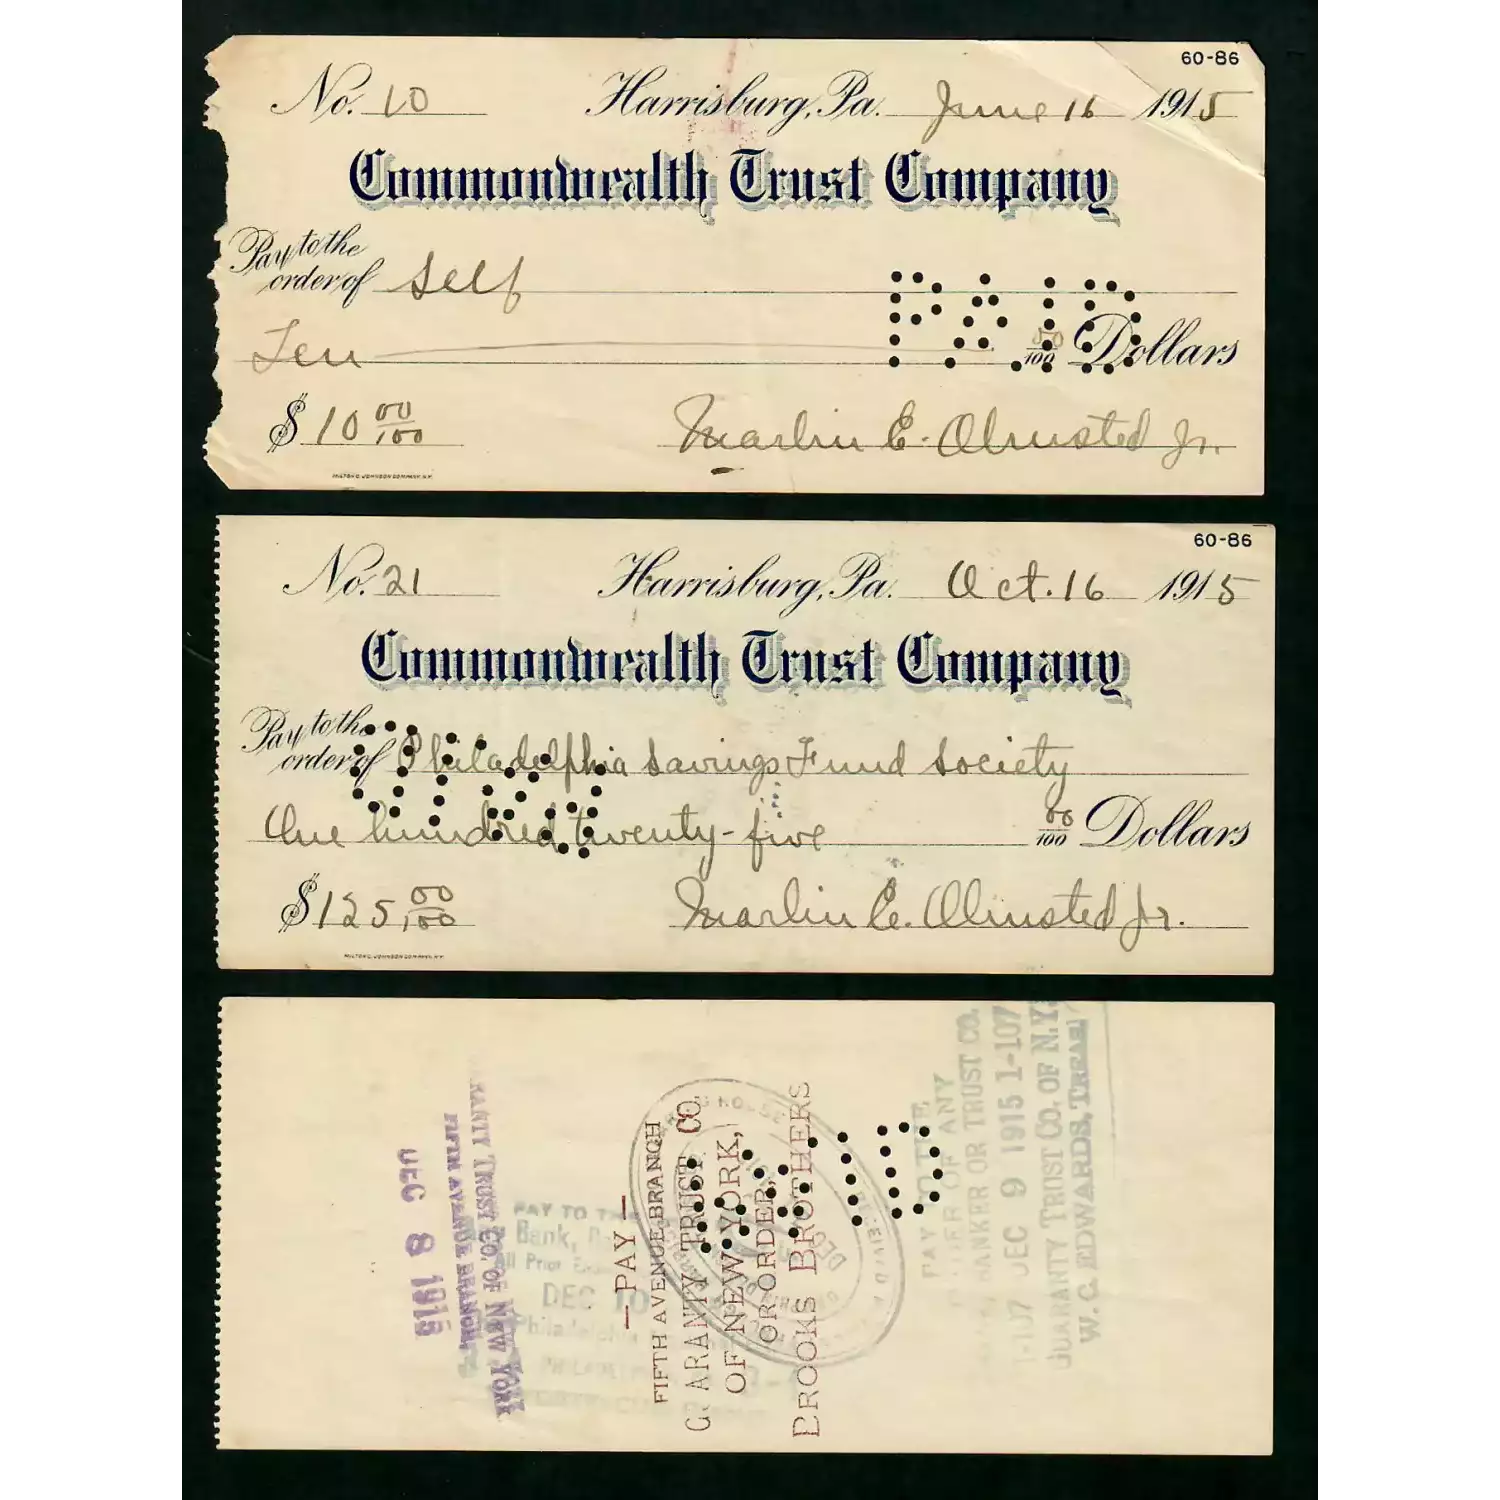 60-86
No. 10 Harrisburg, Pa. June 16 1915
Commonwealth Trust Company
Pay to the
order of Self
Ten 00/100 Dollars
PAID
$10 00/100 Marlin E. Olmsted Jr.
MILTON C. JOHNSON COMPANY, N.Y.
60-86
No. 21 Harrisburg, Pa. Oct. 16 1915
Commonwealth Trust Company
Pay to the
order of Philadelphia Savings Fund Society
One hundred twenty-five 00/100 Dollars
$125 00/100 Marlin E. Olmsted Jr.
MILTON C. JOHNSON COMPANY, N.Y.
RANTY TRUST CO. OF NEW YORK
FIFTH AVENUE BRANCH
DEC 8 1915
PAY TO THE
Bank,
All Prior
DEC 10
Philadelphia
—PAY—
FIFTH AVENUE BRANCH
GUARANTY TRUST CO.
OF NEW YORK,
OR ORDER,
BROOKS BROTHERS
PAID
PAY TO THE
ORDER OF ANY
BANKER OR TRUST CO.
1-107 DEC 9 1915 1-107
GUARANTY TRUST CO. OF N.Y.
W. C. EDWARDS, TREAS.